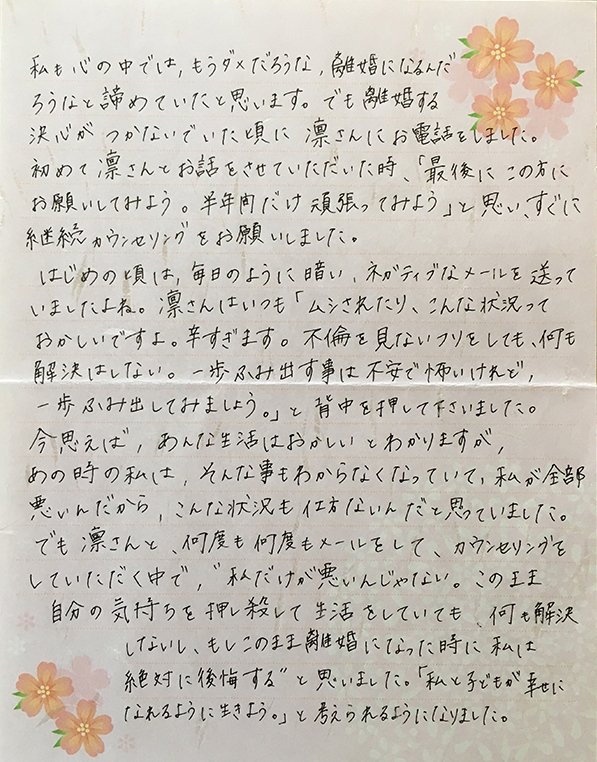 私も心の中では、もうダメだろうな、離婚になるんだ
ろうなと諦めていたと思います。でも離婚する
決心がつかないでいた頃に凛さんにお電話をしました。
初めて凛さんとお話をさせていただいた時、「最後にこの方に
お願いしてみよう。半年間だけ頑張ってみよう」と思い、すぐに
継続カウンセリングをお願いしました。
はじめの頃は、毎日のように暗い、ネガティブなメールを送って
いましたよね。凛さんはいつも「ムシされたり、こんな状況って
おかしいですよ。辛すぎます。不倫を見ないフリをしても、何も
解決はしない。一歩ふみ出す事は不安で怖いけれど、
一歩ふみ出してみましょう。」と背中を押して下さいました。
今思えば、あんな生活はおかしいとわかりますが、
あの時の私は、そんな事もわからなくなっていて、私が全部
悪いんだから、こんな状況も仕方ないんだと思っていました。
でも凛さんと、何度も何度もメールをして、カウンセリングを
していただく中で、"私だけが悪いんじゃない。このまま
自分の気持ちを押し殺して生活をしていても、何も解決
しないし、もしこのまま離婚になった時に私は
絶対に後悔する"と思いました。「私と子どもが幸せに
なれるように生きよう。」と考えられるようになりました。